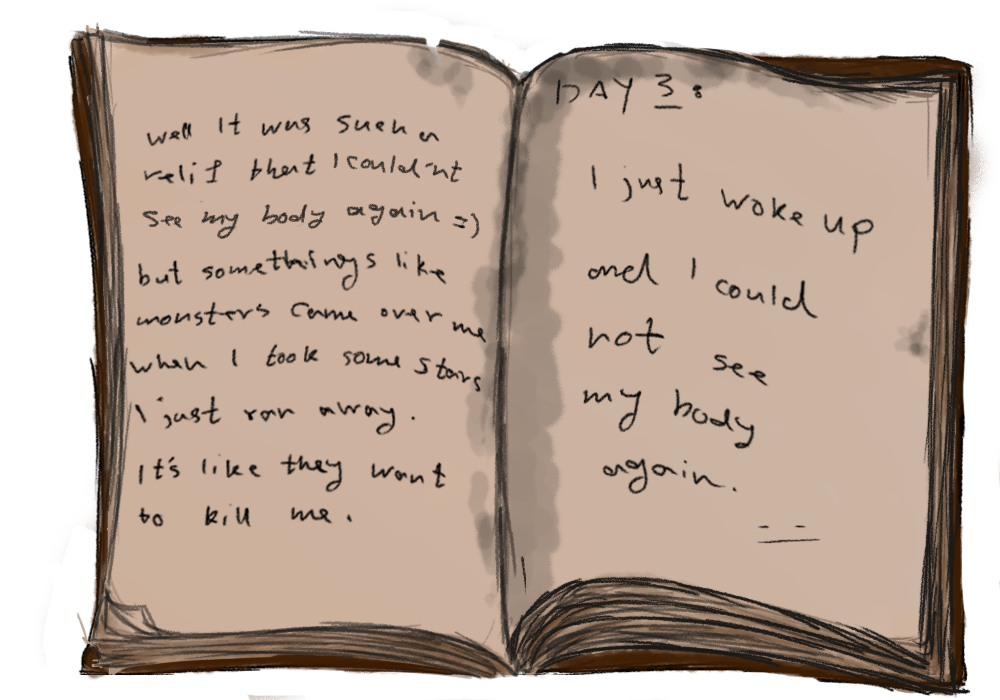 well It was such a
relif that I could'nt
see my body again =)
but somethings like
monsters came over me
when I took some stars
I just ran away.
It's like they want
to kill me.
DAY 3:
I just woke up
and I could
not see
my body
again.